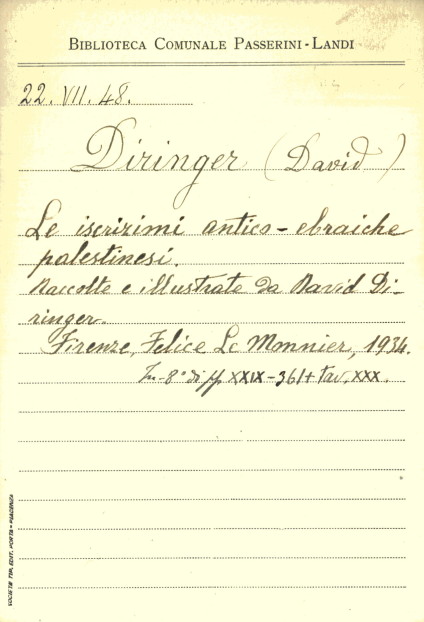 BIBLIOTECA COMUNALE PASSERINI-LANDI
22. VII. 48.
Diringer (David)
Le iscrizioni antico-ebraiche
palestinesi.
Raccolte e illustrate da David Di-
ringer.
Firenze, Felice Le Monnier, 1934.
In-8° di pp XXIX-361 + tav. XXX.
SOCIETÀ TIP. EDIT. PORTA - PIACENZA